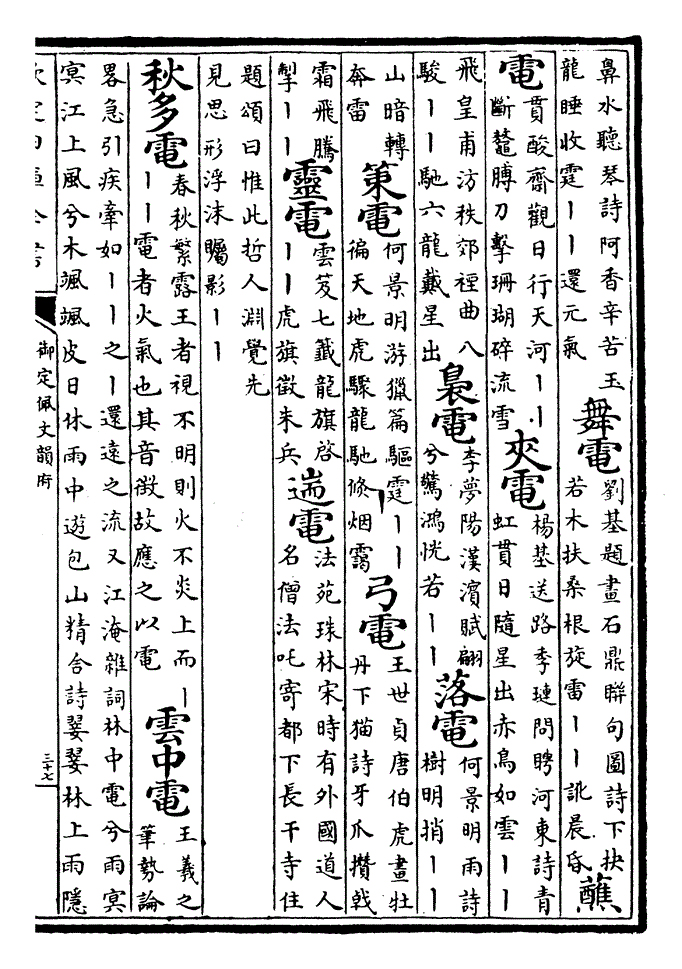 鼻水聽琴詩阿香辛苦玉
龍睡收霆丨丨還元氣
舞電
劉基題畫石鼎聯句圖詩下抉
若木扶桑根旋雷丨丨訛晨昏
蘸
電
貫酸齋觀日行天河丨丨
斷鼇膊刀擊珊瑚碎流雪
夾電
楊基送路季璉問聘河東詩青
虹貫日隨星出赤鳥如雲丨丨
飛皇甫汸秩郊禋曲八
駿丨丨馳六龍戴星出
裊電
李夢陽漢濱賦翩
兮驚鴻恍若丨丨
落電
何景明雨詩
樹明捎丨丨
山暗轉
奔雷
策電
何景明游獵篇驅霆丨丨
徧天地虎驟龍馳倐烟靄
弓電
王世貞唐伯虎畫牡
丹下猫詩牙爪攢戟
霜飛騰
掣丨丨
靈電
雲笈七籤龍旗啓
丨丨虎旗徵朱兵
遄電
法苑珠林宋時有外國道人
名僧法吒寄都下長干寺住
題頌曰惟此哲人淵覺先
見思形浮沫矚影丨丨
秋多電
春秋繁露王者視不明則火不炎上而丨
丨丨電者火氣也其音徴故應之以電
雲中電
王羲之
筆勢論
畧急引疾牽如丨丨之丨還遠之流又江淹雜詞林中電兮雨冥
冥江上風兮木颯颯皮日休雨中遊包山精舍詩翣翣林上雨隱
欽定四庫全書
御定佩文韻府
三十七